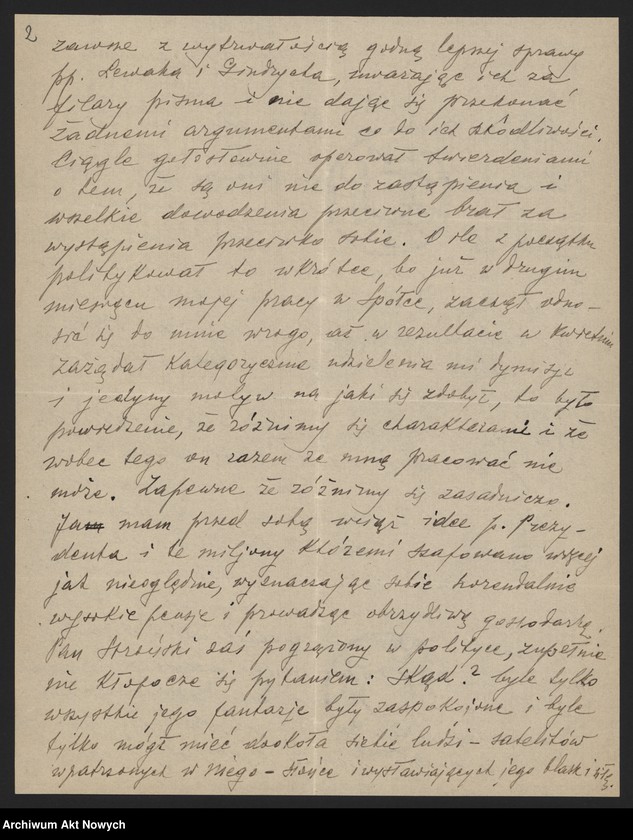 2
zawsze z wytrwałością godną lepszej sprawy
pp. Lewaka i Gondrycha, uważając ich za
filary pisma i nie dając się przekonać
żadnemi argumentami co do ich szkodliwości.
Ciągle gołosłownie operował twierdzeniami
o tem, że są oni nie do zastąpienia i
wszelkie dowodzenia przeciwne brał za
wystąpienia przeciwko sobie. O ile z początku
politykował to wkrótce, bo już w drugim
miesiącu mojej pracy w Spółce, zaczął odno-
sić się do mnie wrogo, aż w rezultacie w kwietniu
zażądał kategorycznie udzielenia mi dymisji
i jedyny motyw na jaki się zdobył, to było
powiedzenie, że różnimy się charakterami i że
wobec tego on razem ze mną pracować nie
może. Zapewne że różnimy się zasadniczo.
Ja mam przed sobą wciąż idee p. Prezy-
denta i te miljony któremi szafowano więcej
jak nieoględnie, wyznaczając sobie horendalnie
wysokie pensje i prowadząc obrzydliwą gospodarkę.
Pan Stroński zaś pogrążony w polityce, zupełnie
nie kłopocze się pytaniem: skąd? byle tylko
wszystkie jego fantazje były zaspokojone i byle
tylko mógł mieć dookoła siebie ludzi – satelitów
wpatrzonych w niego – słońce i wysławiających jego blask i siłę.
Archiwum Akt Nowych